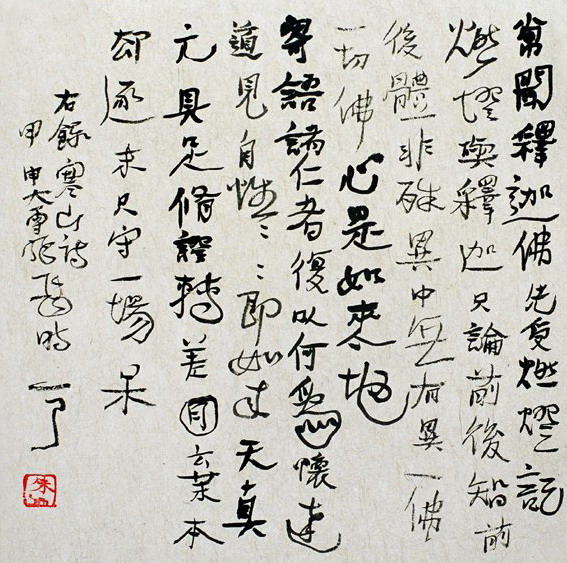 常聞釋迦佛先受燃燈記
燃燈與釋迦只論前後智前
後體非殊異中無有異一佛
一切佛心是如來地
寄語諸仁者復以何為懷達
道見自性〻〻即如來天真
元具足修證轉差回棄本
却逐末只守一場呆
右錄寒山詩
甲申大雪 時一了